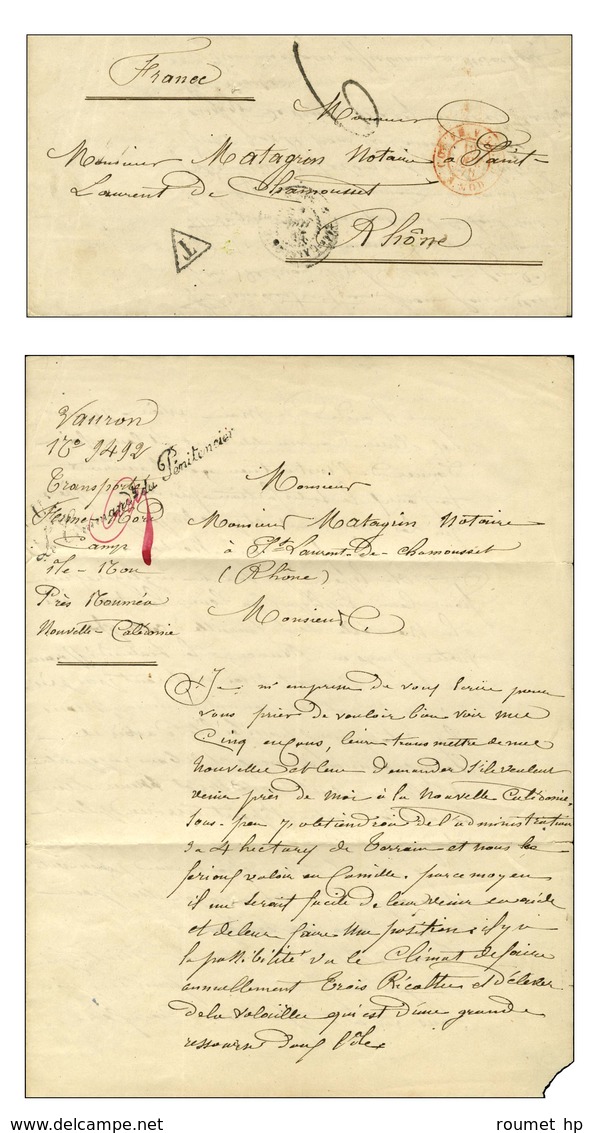 France
Monsieur
Monsieur Matagrin Notaire à Saint-
Laurent de Chamousset
Rhône
T
Vauron
N° 9492
Transporté
Ferme-Nord
Camp
île-Nou
Près Nouméa
Nouvelle-Calédonie
Commandant du Pénitencier
Monsieur
Monsieur Matagrin Notaire
à St-Laurent-de-Chamousset
(Rhône)
Monsieur
Je m'empresse de vous écrire pour
vous prier de vouloir bien voir mes
cinq enfans, leur transmettre de mes
nouvelles et leur demander s'ils veulent
venir près de moi à la Nouvelle Calédonie.
Sous-peu j'obtiendrai de l'administration
3 à 4 hectares de terrain et nous les
ferions valoir en famille. par ce moyen
il me serait facile de leur venir en aide
et de leur faire une position; il y a
la possibilité vu le climat de faire
annuellement trois Récoltes et d'élever
de la volaille qui est d'une grande
ressource dans l'île
www.delcampe.net
roumet hp